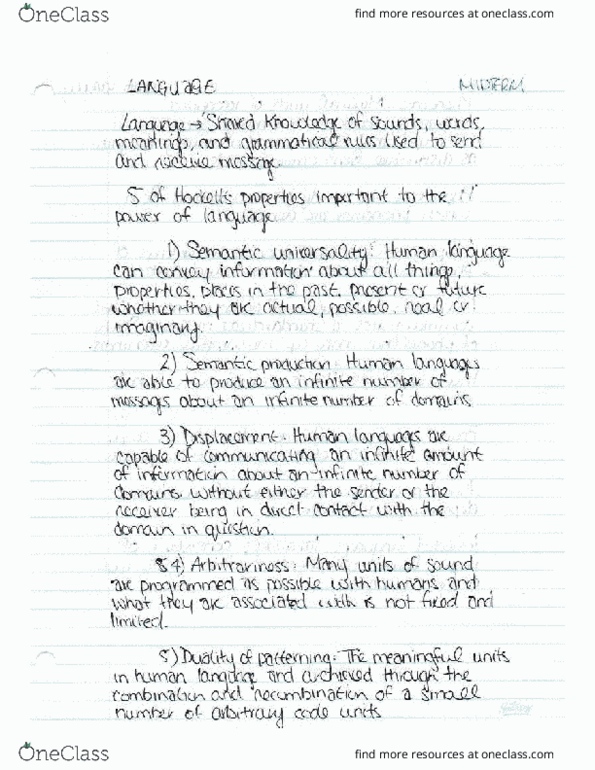 OneClass
find more resources at oneclass.com
LANGUAGE MIDTERM
Language → Shared Knowledge of sounds, words,
meanings, and grammatical rules used to send
and receive message
5 of Hockett's properties important to the
power of language
1) Semantic universality: Human language
can convey information about all things,
properties, places in the past, present or future
whether they are actual, possible, real or
imaginary.
2) Semantic production: Human languages
are able to produce an infinite number of
messages about an infinite number of domains
3) Displacement: Human languages are
capable of communicating an infinite amount
of information about an infinite number of
domains without either the sender or the
receiver being in direct contact with the
domain in question.
4) Arbitrariness: Many units of sound
are programmed as possible with humans and
what they are associated with is not fixed and
limited.
5) Duality of patterning: The meaningful units
in human language and archieved through the
combination and recombination of a small
number of arbitrary code units
OneClass
find more resources at oneclass.com